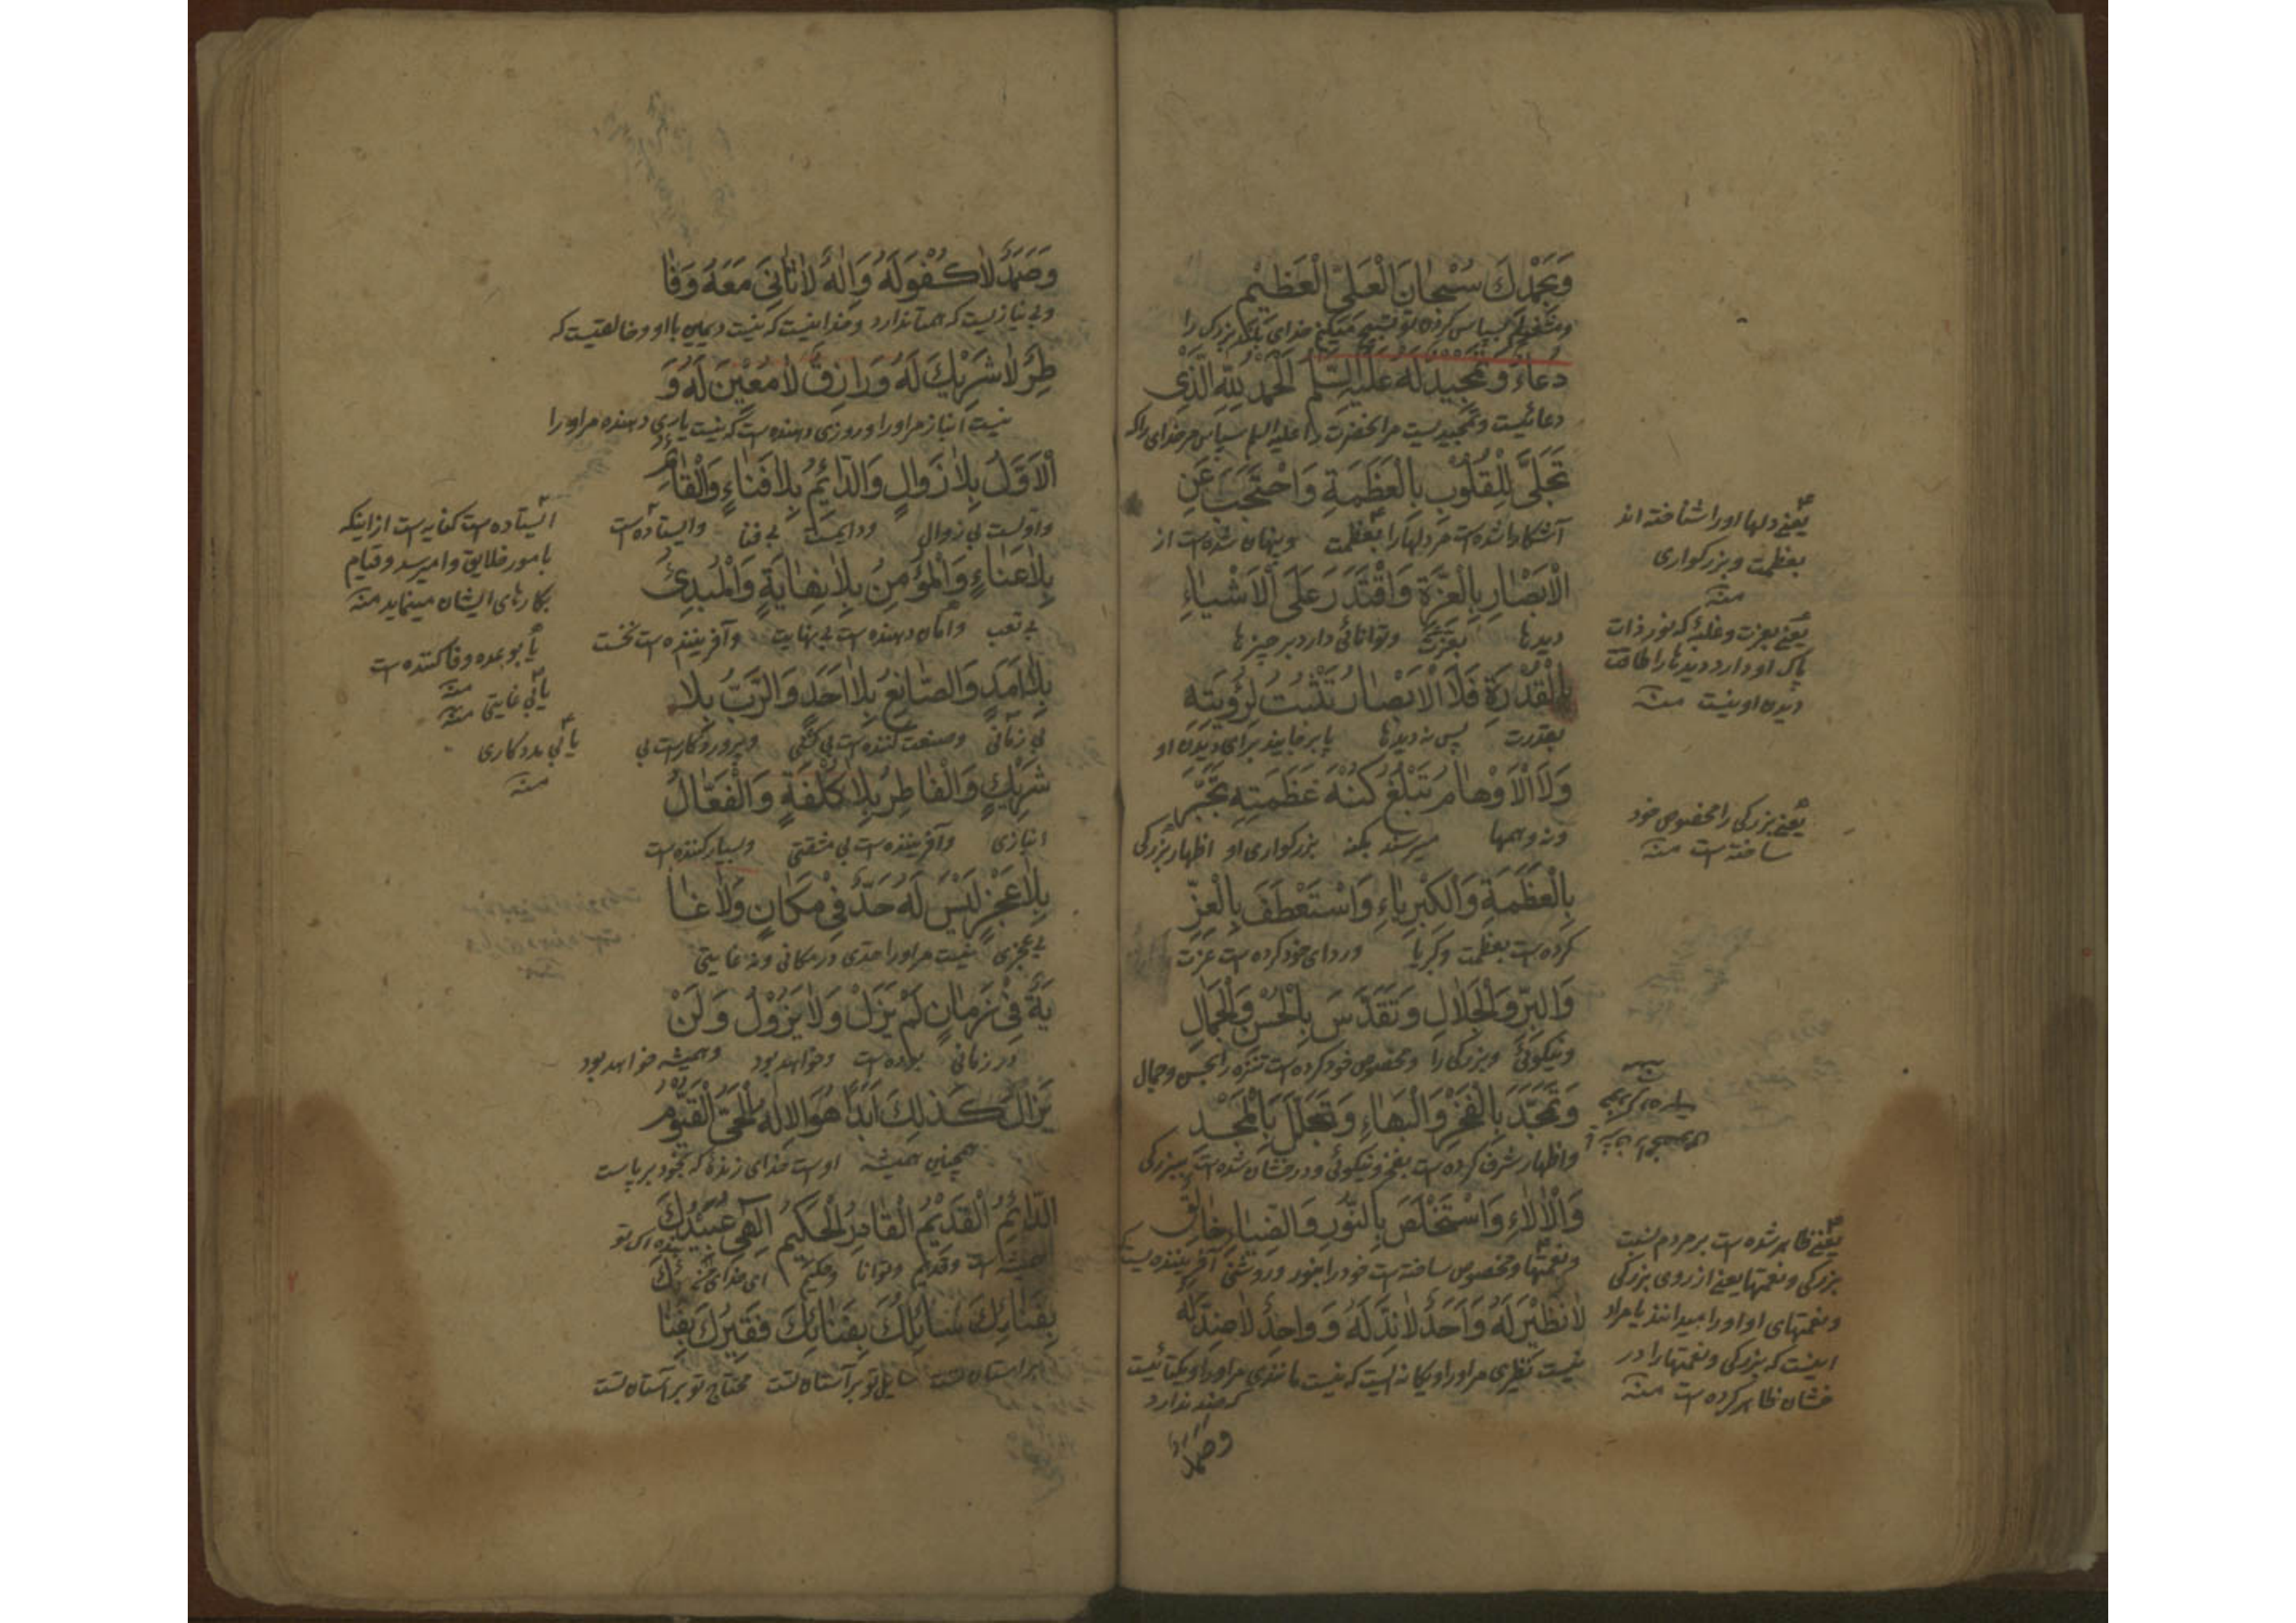 وَبِحَمْدِكَ سُبْحَانَ الْعَلِيِّ الْعَظِيمِ
دُعَاءٌ وَتَمْجِيدٌ لَهُ عَلَيْهِ السَّلَمُ الْحَمْدُ لِلّهِ الَّذِي
دعائیست و تمجیدیست مر انحضرت را علیه السلم سپاس مر خدای را که
تَجَلَّى لِلْقُلُوبِ بِالْعَظَمَةِ وَاحْتَجَبَ عَنِ
آشکارا شده است مر دلها را بعظمت وپنهان شده است از
الْأَبْصَارِ بِالْعِزَّةِ وَاقْتَدَرَ عَلَى الْأَشْيَاءِ
دیدها بعزت وتوانائی دارد بر چیزها
بِالْقُدْرَةِ فَلَا الْأَبْصَارُ تَثْبُتُ لِرُؤْيَتِهِ
بقدرت پس نه دیدها پا برجایند برای دیدن او
وَلَا الْأَوْهَامُ تَبْلُغُ كُنْهَ عَظَمَتِهِ تَجَبَّرَ
ونه وهمها میرسند بکنه بزرکواری او اظهار بزرکی
بِالْعَظَمَةِ وَالْكِبْرِيَاءِ وَاسْتَعْطَفَ بِالْعِزِّ
کرده است بعظمت وکبریا وردای خود کرده است عزت
وَالْبِرِّ وَالْجَلَالِ وَتَقَدَّسَ بِالْحُسْنِ وَالْجَمَالِ
ونیکوئی وبزرکی را ومخصوص خود کرده است تنزه را بحسن وجمال
وَتَمَجَّدَ بِالْفَخْرِ وَالْبَهَاءِ وَتَجَلَّلَ بِالْمَجْدِ
واظهار شرف کرده است بفخر ونیکوئی ودرفشان شده است ببزرکی
وَالْآلَاءِ وَاسْتَخْلَصَ بِالنُّورِ وَالضِّيَاءِ خَالِقٌ
ونعمتها ومخصوص ساخته است خود را بنور وروشنی آفریننده یست که
لَا نَظِيرَ لَهُ وَأَحَدٌ لَا نِدَّ لَهُ وَوَاحِدٌ لَا ضِدَّ لَهُ
نیست نظیری مر او را ویکانه ایست که نیست مانندی مر او را ویکتائیست
که ضد ندارد
وصمد
یعنی دلها او را شناخته اند
بعظمت وبزرکواری
منه
یعنی بعزت وغلبهٔ که نور ذات
پاک او دارد دیدها را طاقت
دیدن او نیست منه
یعنی بزرکی را مخصوص خود
ساخته است منه
یعنی ظاهر شده است بر مردم بسبب
بزرکی ونعمتها یعنی از روی بزرکی
ونعمتهای او او را میدانند یا مراد
اینست که بزرکی ونعمتها را در
خشان ظاهر کرده است منه
وَصَمَدٌ لَا كُفْوَ لَهُ وَإِلَهٌ لَا ثَانِيَ مَعَهُ وَفَا
وبی نیازیست که همتا ندارد وخدائیست که نیست دیمین با او وخالقیست که
طِرٌ لَا شَرِيكَ لَهُ وَرَازِقٌ لَا مُعِينَ لَهُ وَ
نیست انباز مر او را وروزی دهنده است که نیست یاری دهنده مر او را
الْأَوَّلُ بِلَا زَوَالٍ وَالدَّائِمُ بِلَا فَنَاءٍ وَالْقَائِمُ
واولست بی زوال ودایمست بی فنا وایستاده است
بِلَا عَنَاءٍ وَالْمُؤْمِنُ بِلَا نِهَايَةٍ وَالْمُبْدِئُ
بی تعب وامان دهنده است بی نهایت وآفریننده است نخست
بِلَا أَمَدٍ وَالصَّانِعُ بِلَا أَحَدٍ وَالرَّبُّ بِلَا
بی زمانی وصنعت کننده است بی کسی وپروردکارست بی
شَرِيكٍ وَالْفَاطِرُ بِلَا كُلْفَةٍ وَالْفَعَّالُ
انبازی وآفریننده است بی مشقتی وبسیار کننده است
بِلَا عَجْزٍ لَيْسَ لَهُ حَدٌّ فِي مَكَانٍ وَلَا غَا
بی عجزی نیست مر او را حدی در مکانی ونه غایتی
يَةٌ فِي زَمَانٍ لَمْ يَزَلْ وَلَا يَزُولُ وَلَنْ
در زمانی بوده است وخواهد بود وهمیشه خواهد بود
يَزَالَ كَذَلِكَ أَبَدًا هُوَ الْإِلَهُ الْحَيُّ الْقَيُّومُ
همچنین همیشه اوست خدای زندهٔ که بخود برپاست
الدَّائِمُ الْقَدِيمُ الْقَادِرُ الْحَكِيمُ إِلَهِي عُبَيْدُكَ
همیشه است وقدیم وتوانا وحکیم ای خدای من بندهٔ تو
بِفِنَائِكَ سَائِلُكَ بِفِنَائِكَ فَقِيرُكَ بِفِنَا
بر آستان تست سایل تو بر آستان تست محتاج تو بر آستان تست
ایستاده است کنایه است از اینکه
بامور خلایق وامیرسد وقیام
بکارهای ایشان مینماید منه
یا بوعده وفا کننده است
منه
یا بی غایتی منه
یا بی مددکاری
منه